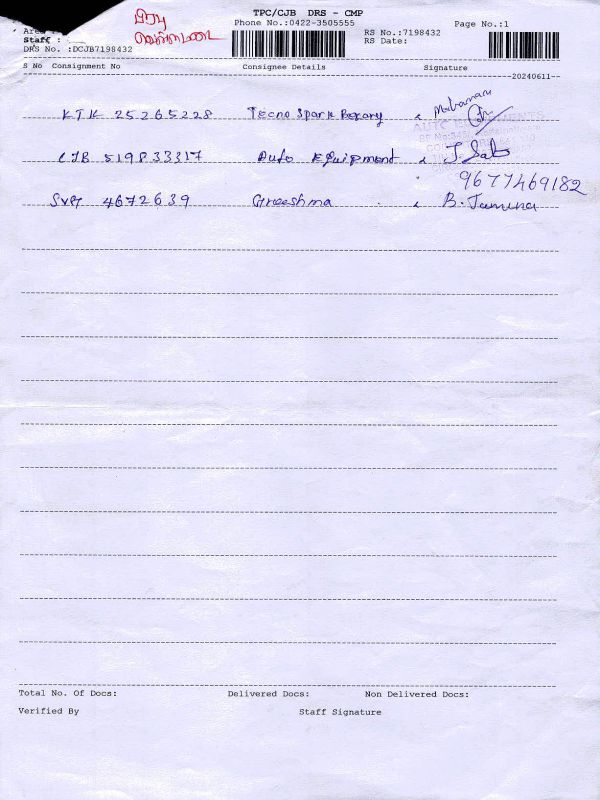 TPC/CJB DRS - CMP
Phone No.:0422-3505555
Page No.:1
RS No.:7198432
RS Date:
Staff :
DRS No. :DCJB7198432
S No Consignment No Consignee Details Signature
20240611
KTK 25265228 Tecno Spark
CJB 519833317 Auto Equipment
9677469182
4672639 Greeshma B. Jamuna
Total No. Of Docs: Delivered Docs: Non Delivered Docs:
Verified By Staff Signature